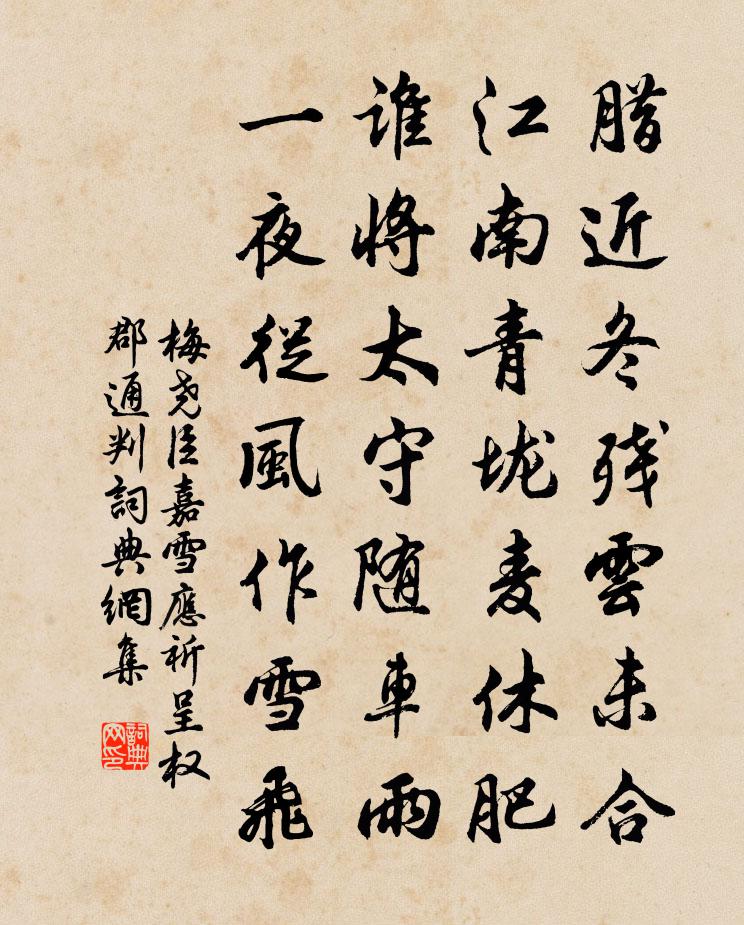 腊近冬残雲未合
江南青垅麦休肥
谁將太守随車雨
一夜從風作雪飛
梅尧臣嘉雪應祈呈权
郡通判詞典網集
詞典网印